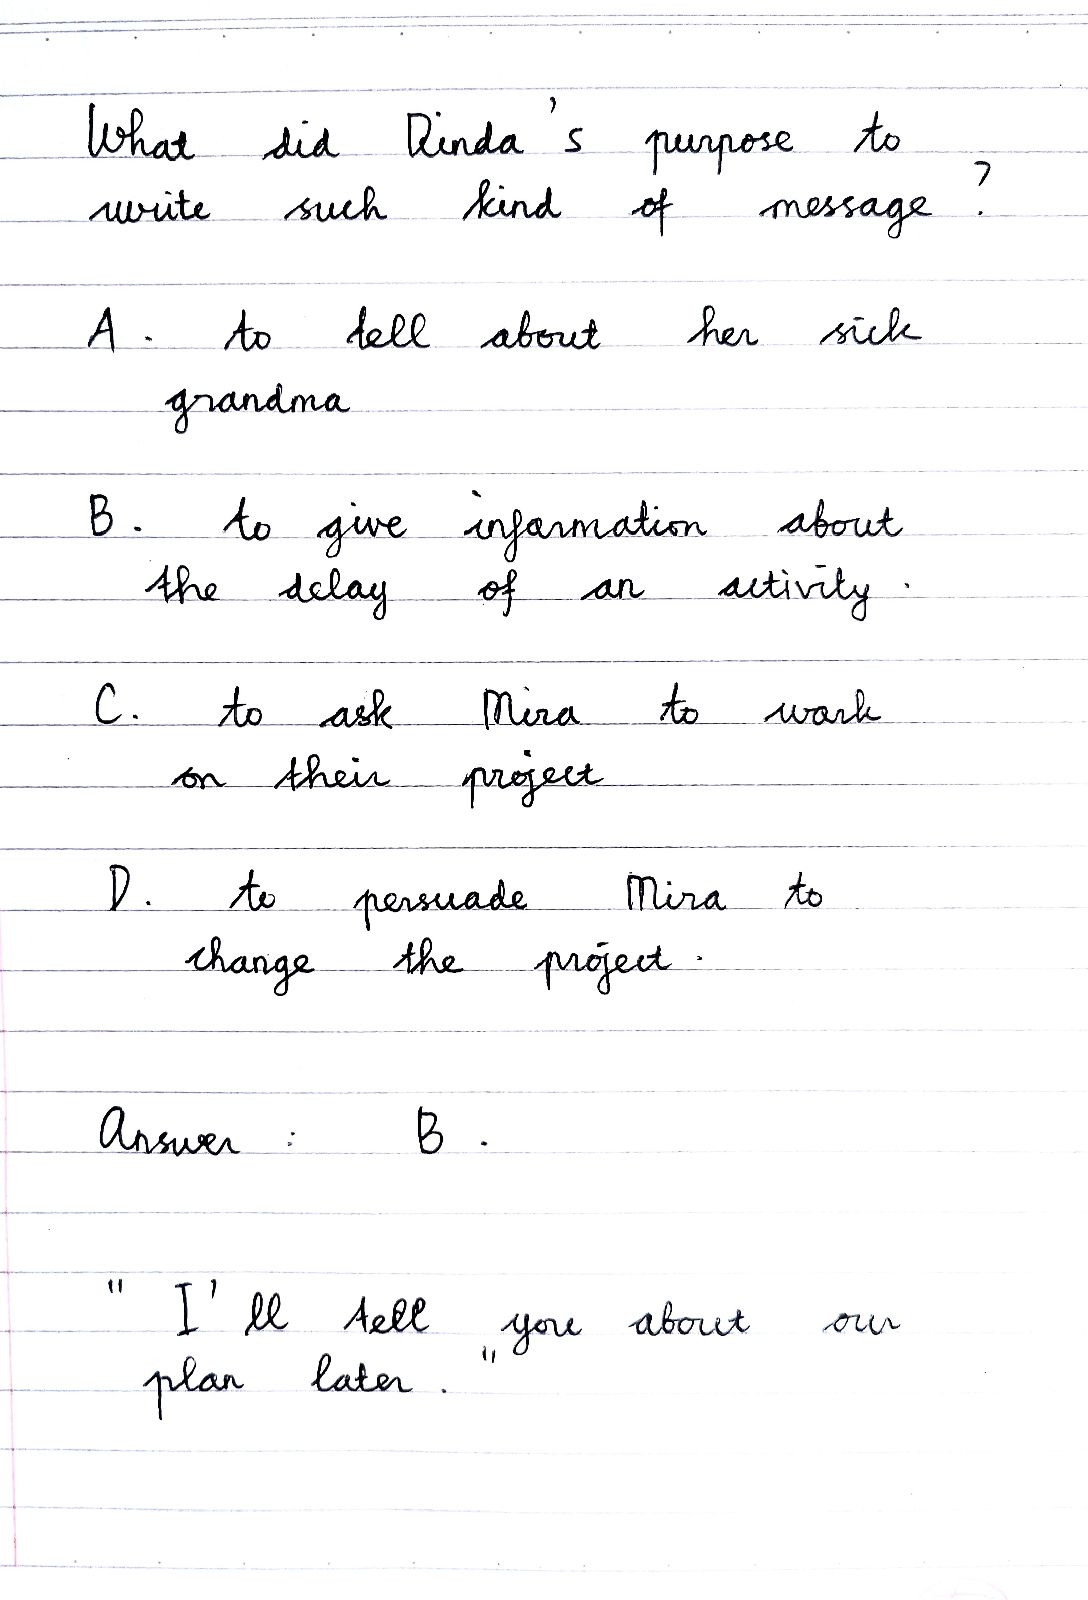 What did Rinda's purpose to
write such kind of message?
A. to tell about her sick
grandma
B. to give information about
the delay of an activity.
C. to ask Mira to work
on their project
D. to persuade Mira to
change the project.
Answer : B.
"I'll tell you about our
plan later."